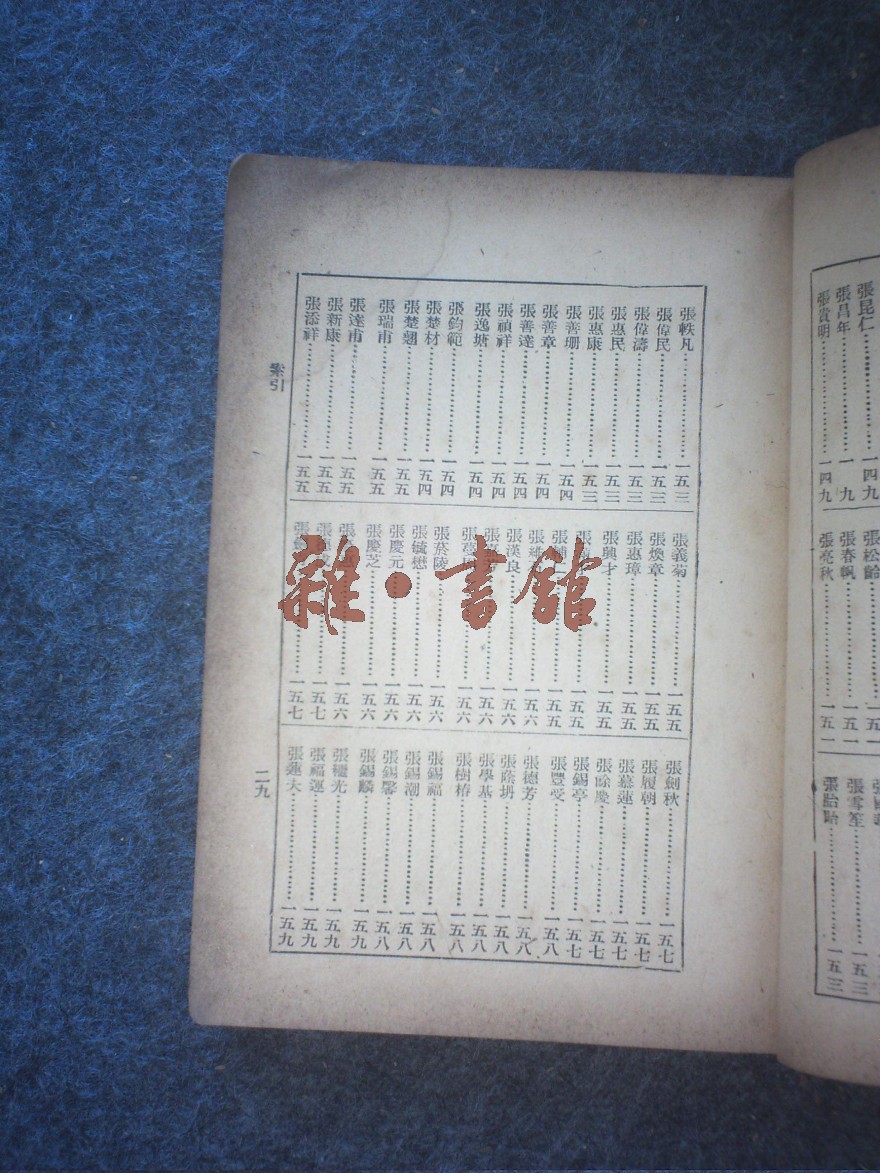 張軼凡……一五三
張偉民……一五三
張偉濤……一五三
張惠民……一五三
張惠康……一五三
張善珊……一五四
張善章……一五四
張善達……一五四
張禎祥……一五四
張逸塘……一五四
張鈞範……一五四
張楚材……一五四
張楚翹……一五五
張瑞甫……一五五
張達甫……一五五
張新康……一五五
張添祥……一五五
張義菊……一五五
張煥章……一五五
張惠璋……一五五
張興才……一五五
張漢良……一五六
張菸陵……一五六
張毓懋……一五六
張慶元……一五六
張慶芝……一五六
張劍秋……一五七
張履朝……一五七
張慕蓮……一五七
張餘慶……一五七
張錫亭……一五七
張豐受……一五八
張德芳……一五八
張蔭坍……一五八
張學基……一五八
張樹椿……一五八
張錫福……一五八
張錫潮……一五八
張錫馨……一五八
張錫麟……一五九
張光……一五九
張福運……一五九
張夫……一五九
索引
二九
雜·書館
張昆仁……一四九
張昌年……一四九
張貴明……一四九
張松齡……一五一
張春帆……一五一
張亮秋……一五一
張雪笙……一五三
張貽……一五三